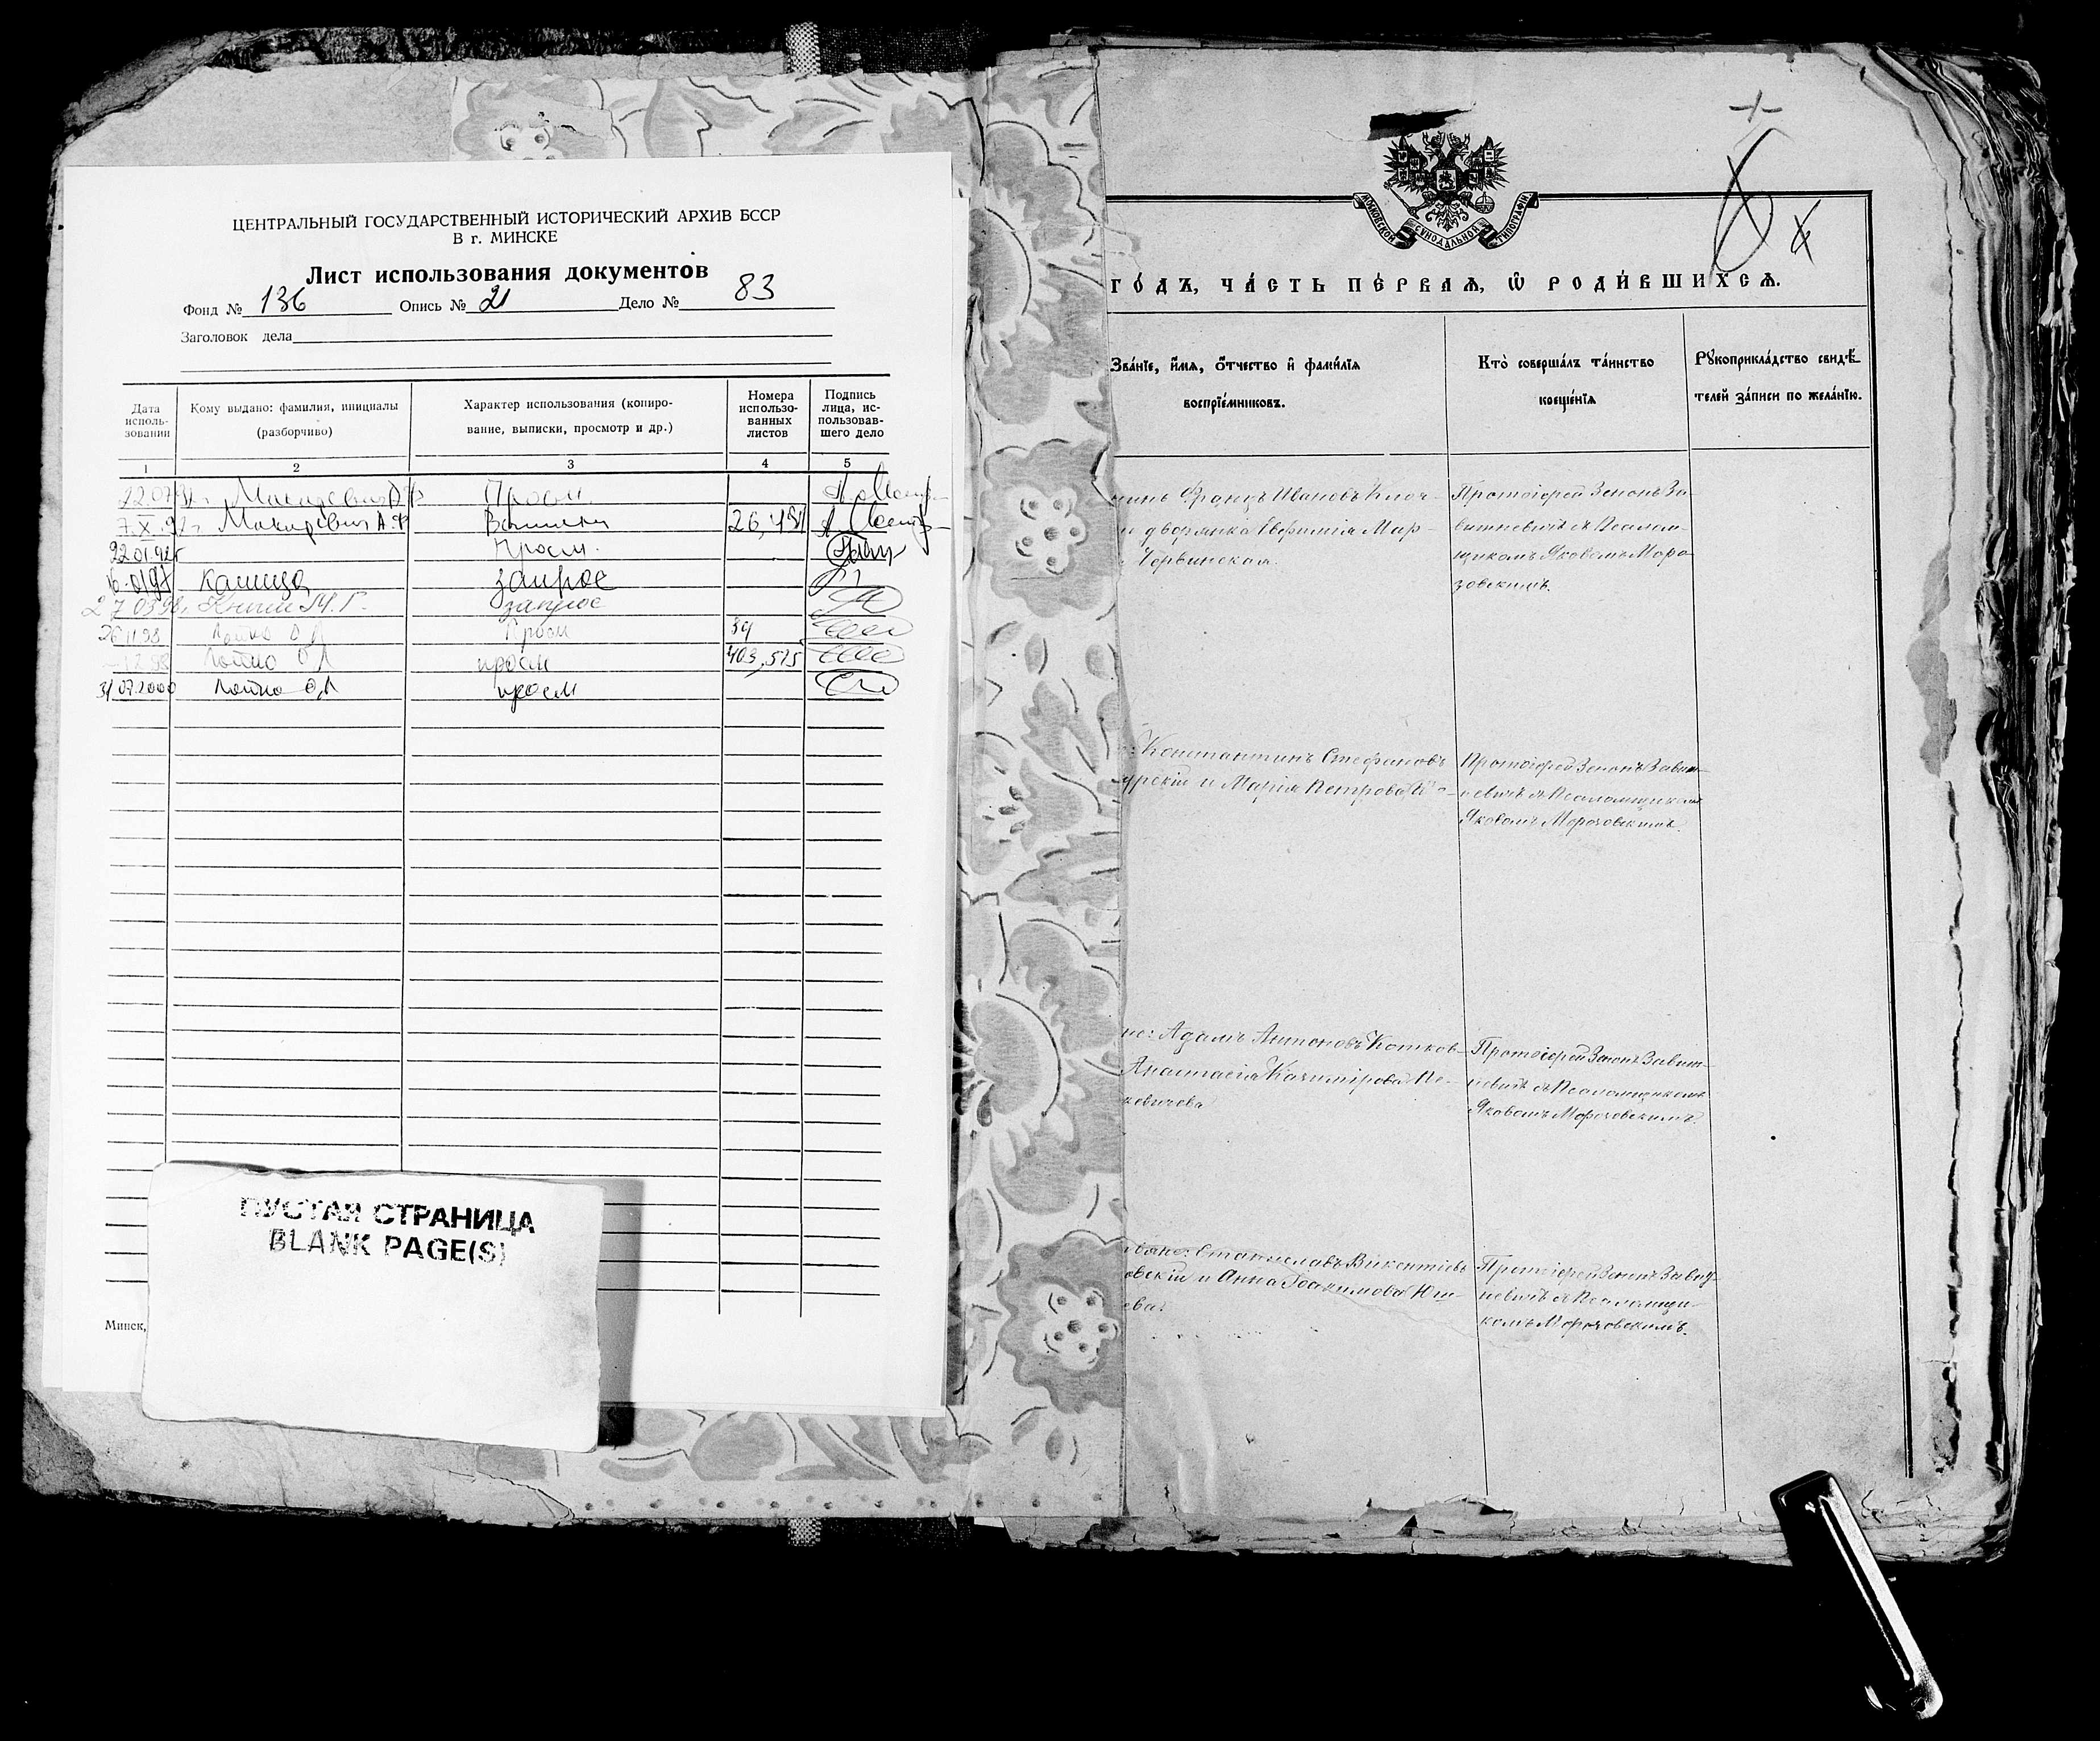 ЦЕНТРАЛЬНЫЙ ГОСУДАРСТВЕННЫЙ ИСТОРИЧЕСКИЙ АРХИВ БССР
В г. МИНСКЕ
Лист использования документов
Фонд № 136 Опись № 21 Дело № 83
Заголовок дела
Дата исполь-зовании
Кому выдано: фамилия, инициалы
(разборчиво)
Характер использования (копиро-
вание, выписки, просмотр и др.)
Номера
использо-
ванных
листов
Подпись
лица, ис-
пользовав-
шего дело
1 2 3 4 5
Просм.
7.X.91г Макаревич А.Ф 26,
22.01.92г Просм.
запрос
27.03.98г. Книги М.Г. запрос
26.11.98 просм 39
Лойко О Л просм 403, 575
31.07.2000 Лойко О Л просм
ПУСТАЯ СТРАНИЦА
BLANK PAGE(S)
Минск,
МОСКОВСКОЙ СѴНОДАЛЬНОЙ ТИПОГРАФІИ
ГО́ДЪ, ЧА́СТЬ ПЕ́РВАѦ, Ѿ РОДИ́ВШИХСѦ.
Зва́нїе, и́мѧ, о́тчество и҆ фами́лїѧ
воспрїе́мниковъ.
Кто̀ соверша́лъ та́инство
креще́нїѧ
Рꙋкоприкла́дство свидѣ́-
телей за́писи по жела́нїю.
Францъ Ивановъ
и дворянка Евфимія Мар-
Червинская.
Протоіерей Зенонъ За-
витневичъ съ Псалом-
щикомъ Яковомъ Моро-
зовскимъ.
Константинъ Стефановъ
и Марія Петрова
Протоіерей Зенонъ Завит-
невичъ съ Псаломщикомъ
Яковомъ Морозовскимъ.
Адамъ Антоновъ Котков-
Анастасія Казимірова
Протоіерей Зенонъ Завит-
невичъ съ Псаломщикомъ
Яковомъ Морозовскимъ.
Станиславъ Викентіевъ
овскій и Анна Іоакимова
Протоіерей Зенонъ Завит-
невичъ съ Псаломщи-
комъ Морозовскимъ.